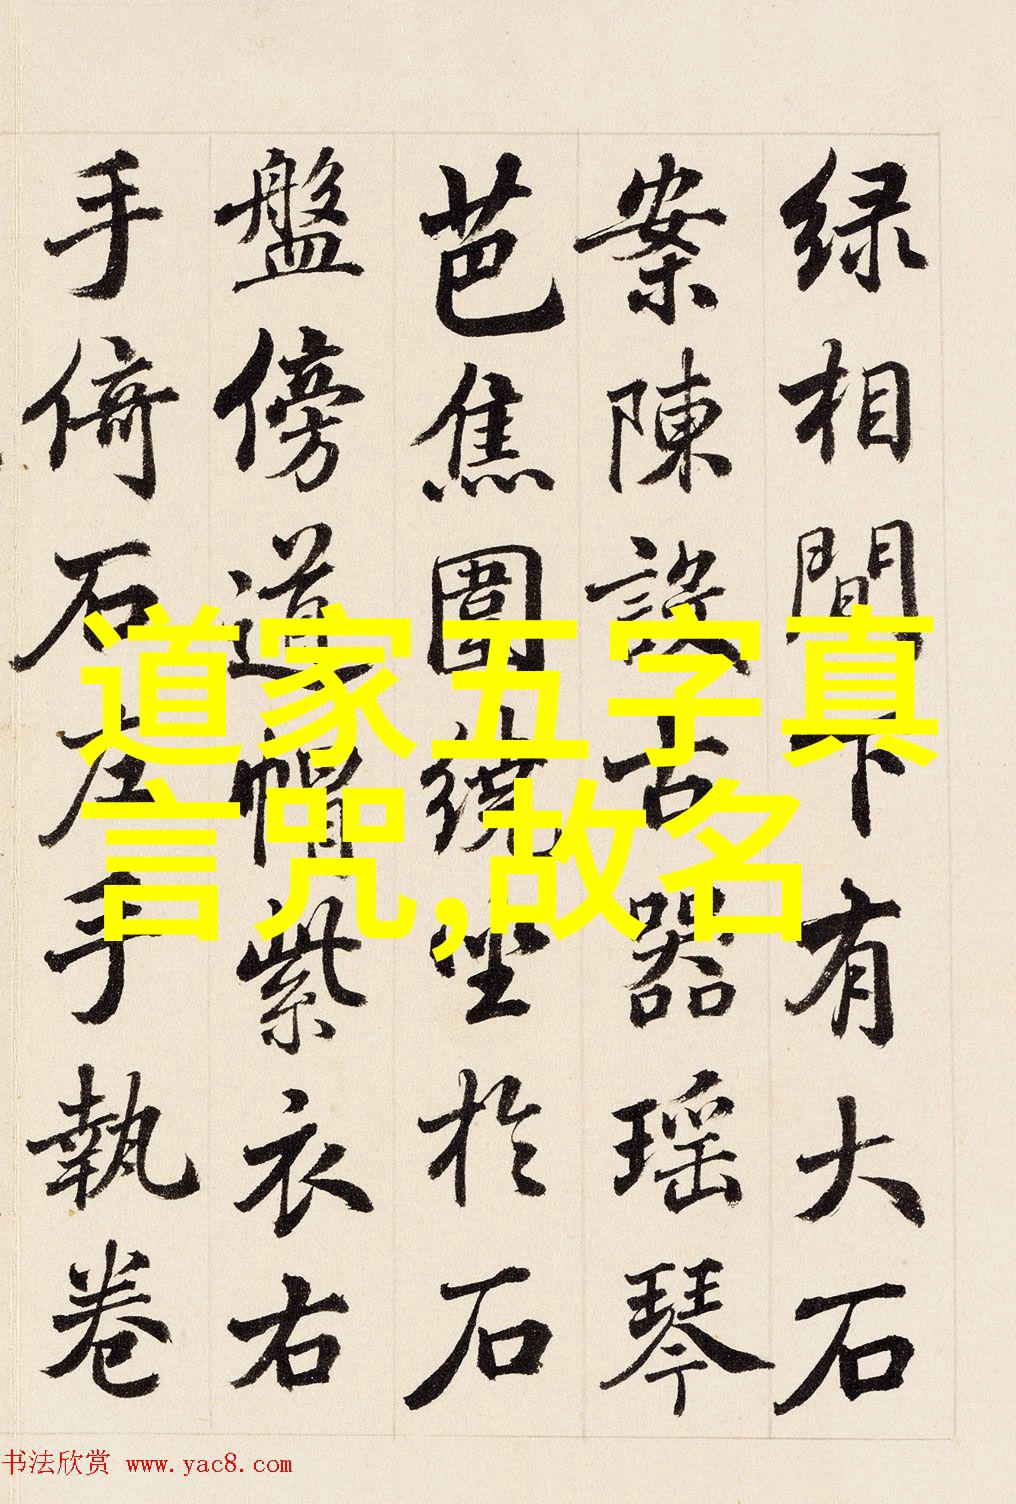 绿相間下有大石
案陳設古器瑶琴
芭焦圍繞坐於石
盤傍道帽紫衣右
手倚石左手執卷
道家五字真
言咒,故名
书法欣赏 www.yac8.com